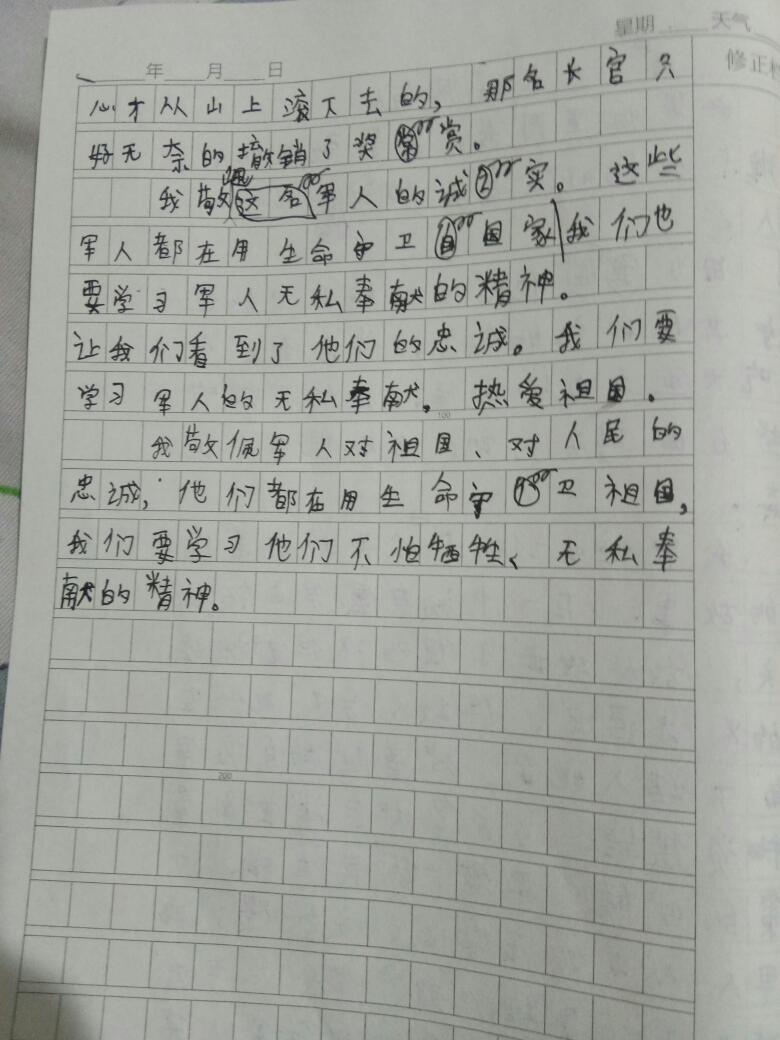 星期 天气
年 月 日
心才从山上滚下去的，那名长官只
好无奈的撤销了奖赏。
我敬佩军人的诚实。这些
军人都在用生命守卫国家，我们也
要学习军人无私奉献的精神。
让我们看到了他们的忠诚。我们要
学习军人的无私奉献，热爱祖国。
100
我敬佩军人对祖国、对人民的
忠诚，他们都在用生命守卫祖国，
我们要学习他们不怕牺牲、无私奉
献的精神。
200